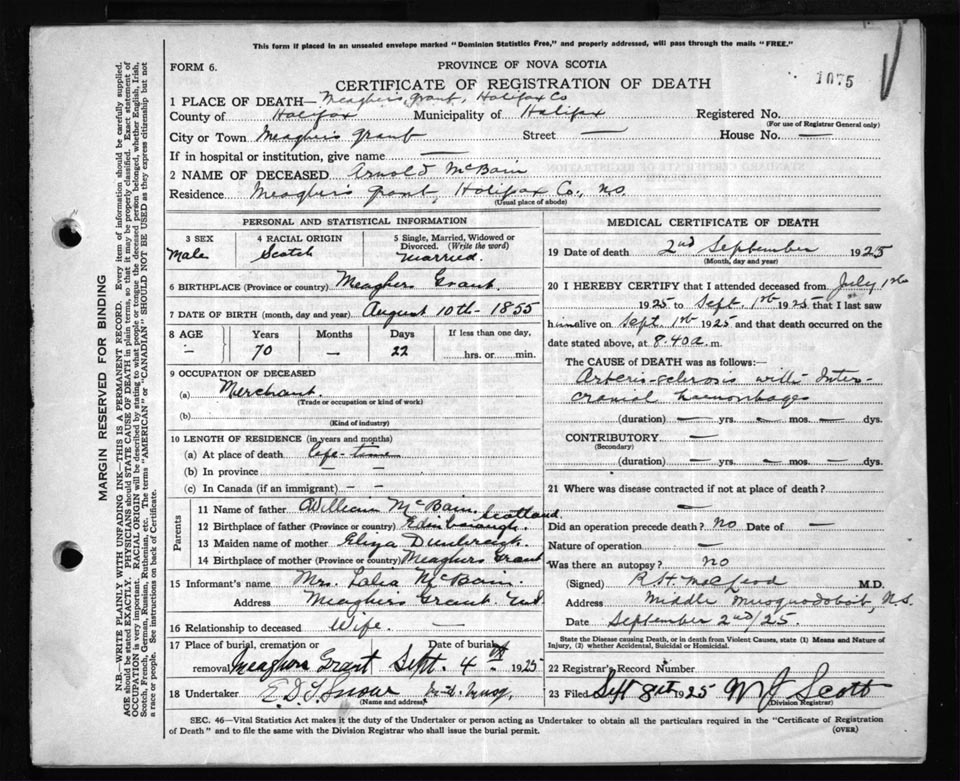 This form if placed in an unsealed envelope marked "Dominion Statistics Free," and properly addressed, will pass through the mails "FREE."
FORM 6.
PROVINCE OF NOVA SCOTIA
1075
CERTIFICATE OF REGISTRATION OF DEATH
1 PLACE OF DEATH— Meaghers Grant, Halifax Co
County of Halifax Municipality of Halifax Registered No.
(For use of Registrar General only)
City or Town Meaghers Grant Street — House No. —
If in hospital or institution, give name —
2 NAME OF DECEASED Arnold McBain
Residence Meaghers Grant, Halifax Co., N.S.
(Usual place of abode)
PERSONAL AND STATISTICAL INFORMATION
3 SEX
Male
4 RACIAL ORIGIN
Scotch
5 Single, Married, Widowed or
Divorced. (Write the word)
Married.
6 BIRTHPLACE (Province or country) Meaghers Grant.
7 DATE OF BIRTH (month, day and year) August 10th - 1855
8 AGE Years Months Days If less than one day,
— 70 — 22 hrs. or min.
9 OCCUPATION OF DECEASED
(a) Merchant.
(Trade or occupation or kind of work)
(b)
(Kind of industry)
10 LENGTH OF RESIDENCE (in years and months)
(a) At place of death Life-time
(b) In province — —
(c) In Canada (if an immigrant) — —
Parents
11 Name of father William McBain
12 Birthplace of father (Province or country) Edinborough. Scotland
13 Maiden name of mother Eliza
14 Birthplace of mother (Province or country) Meaghers Grant
15 Informant's name Mrs. McBain.
Address Meaghers Grant.
16 Relationship to deceased Wife. —
17 Place of burial, cremation or Date of burial
removal Meaghers Grant Sept. 4th 1925
18 Undertaker
(Name and address)
MEDICAL CERTIFICATE OF DEATH
19 Date of death 2nd September 1925
(Month, day and year)
20 I HEREBY CERTIFY that I attended deceased from July
1925 to Sept. 1925 that I last saw
him alive on Sept. 1925 and that death occurred on
date stated above, at 8.40 a. m.
The CAUSE of DEATH was as follows:—
Arterio-sclerosis with Inter-
cranial haemorrhages
(duration) — yrs. — mos. — dys.
CONTRIBUTORY —
(Secondary)
(duration) — yrs. — mos. — dys.
21 Where was disease contracted if not at place of death?
—
Did an operation precede death? No Date of —
Nature of operation —
Was there an autopsy? no
(Signed) R.H. McLeod M.D.
Address Middle Musquodoboit, N.S.
Date September 2nd/25.
State the Disease causing Death, or in death from Violent Causes, state (1) Means and Nature of
Injury, (2) whether Accidental, Suicidal or Homicidal.
22 Registrar's Record Number
23 Filed Sept 8th 1925 W J Scott
(Division Registrar)
SEC. 46—Vital Statistics Act makes it the duty of the Undertaker or person acting as Undertaker to obtain all the particulars required in the "Certificate of Registration
of Death" and to file the same with the Division Registrar who shall issue the burial permit.
(OVER)
MARGIN RESERVED FOR BINDING
N.B.—WRITE PLAINLY WITH UNFADING INK—THIS IS A PERMANENT RECORD. Every item of information should be carefully supplied.
AGE should be stated EXACTLY. PHYSICIANS should STATE CAUSE OF DEATH in plain terms, so that it may be properly classified. Exact statement of
OCCUPATION is very important. RACIAL ORIGIN will be described by stating to what people or tongue the deceased person belonged, whether English, Irish,
Scotch, French, German, Russian, Ruthenian, etc. The terms "AMERICAN" or "CANADIAN" SHOULD NOT BE USED as they express citizenship but not
a race or people. See instructions on back of Certificate.